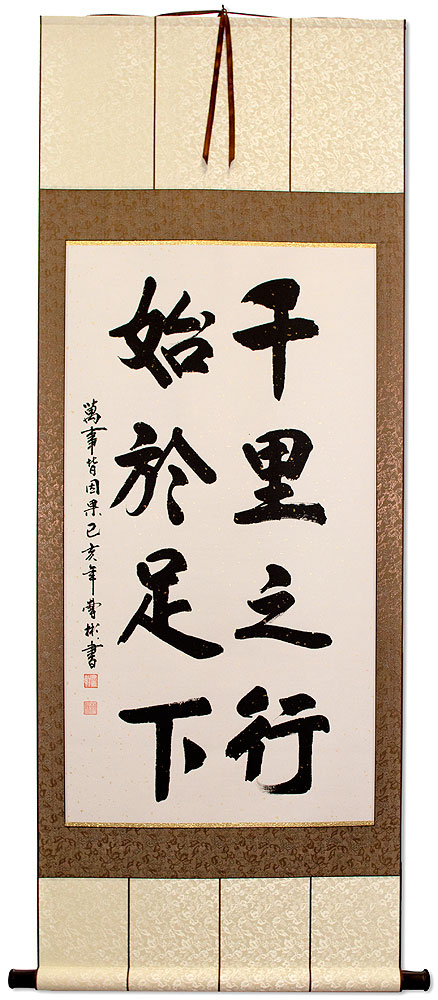 千里之行
始於足下
萬事皆因果己亥年書彬書